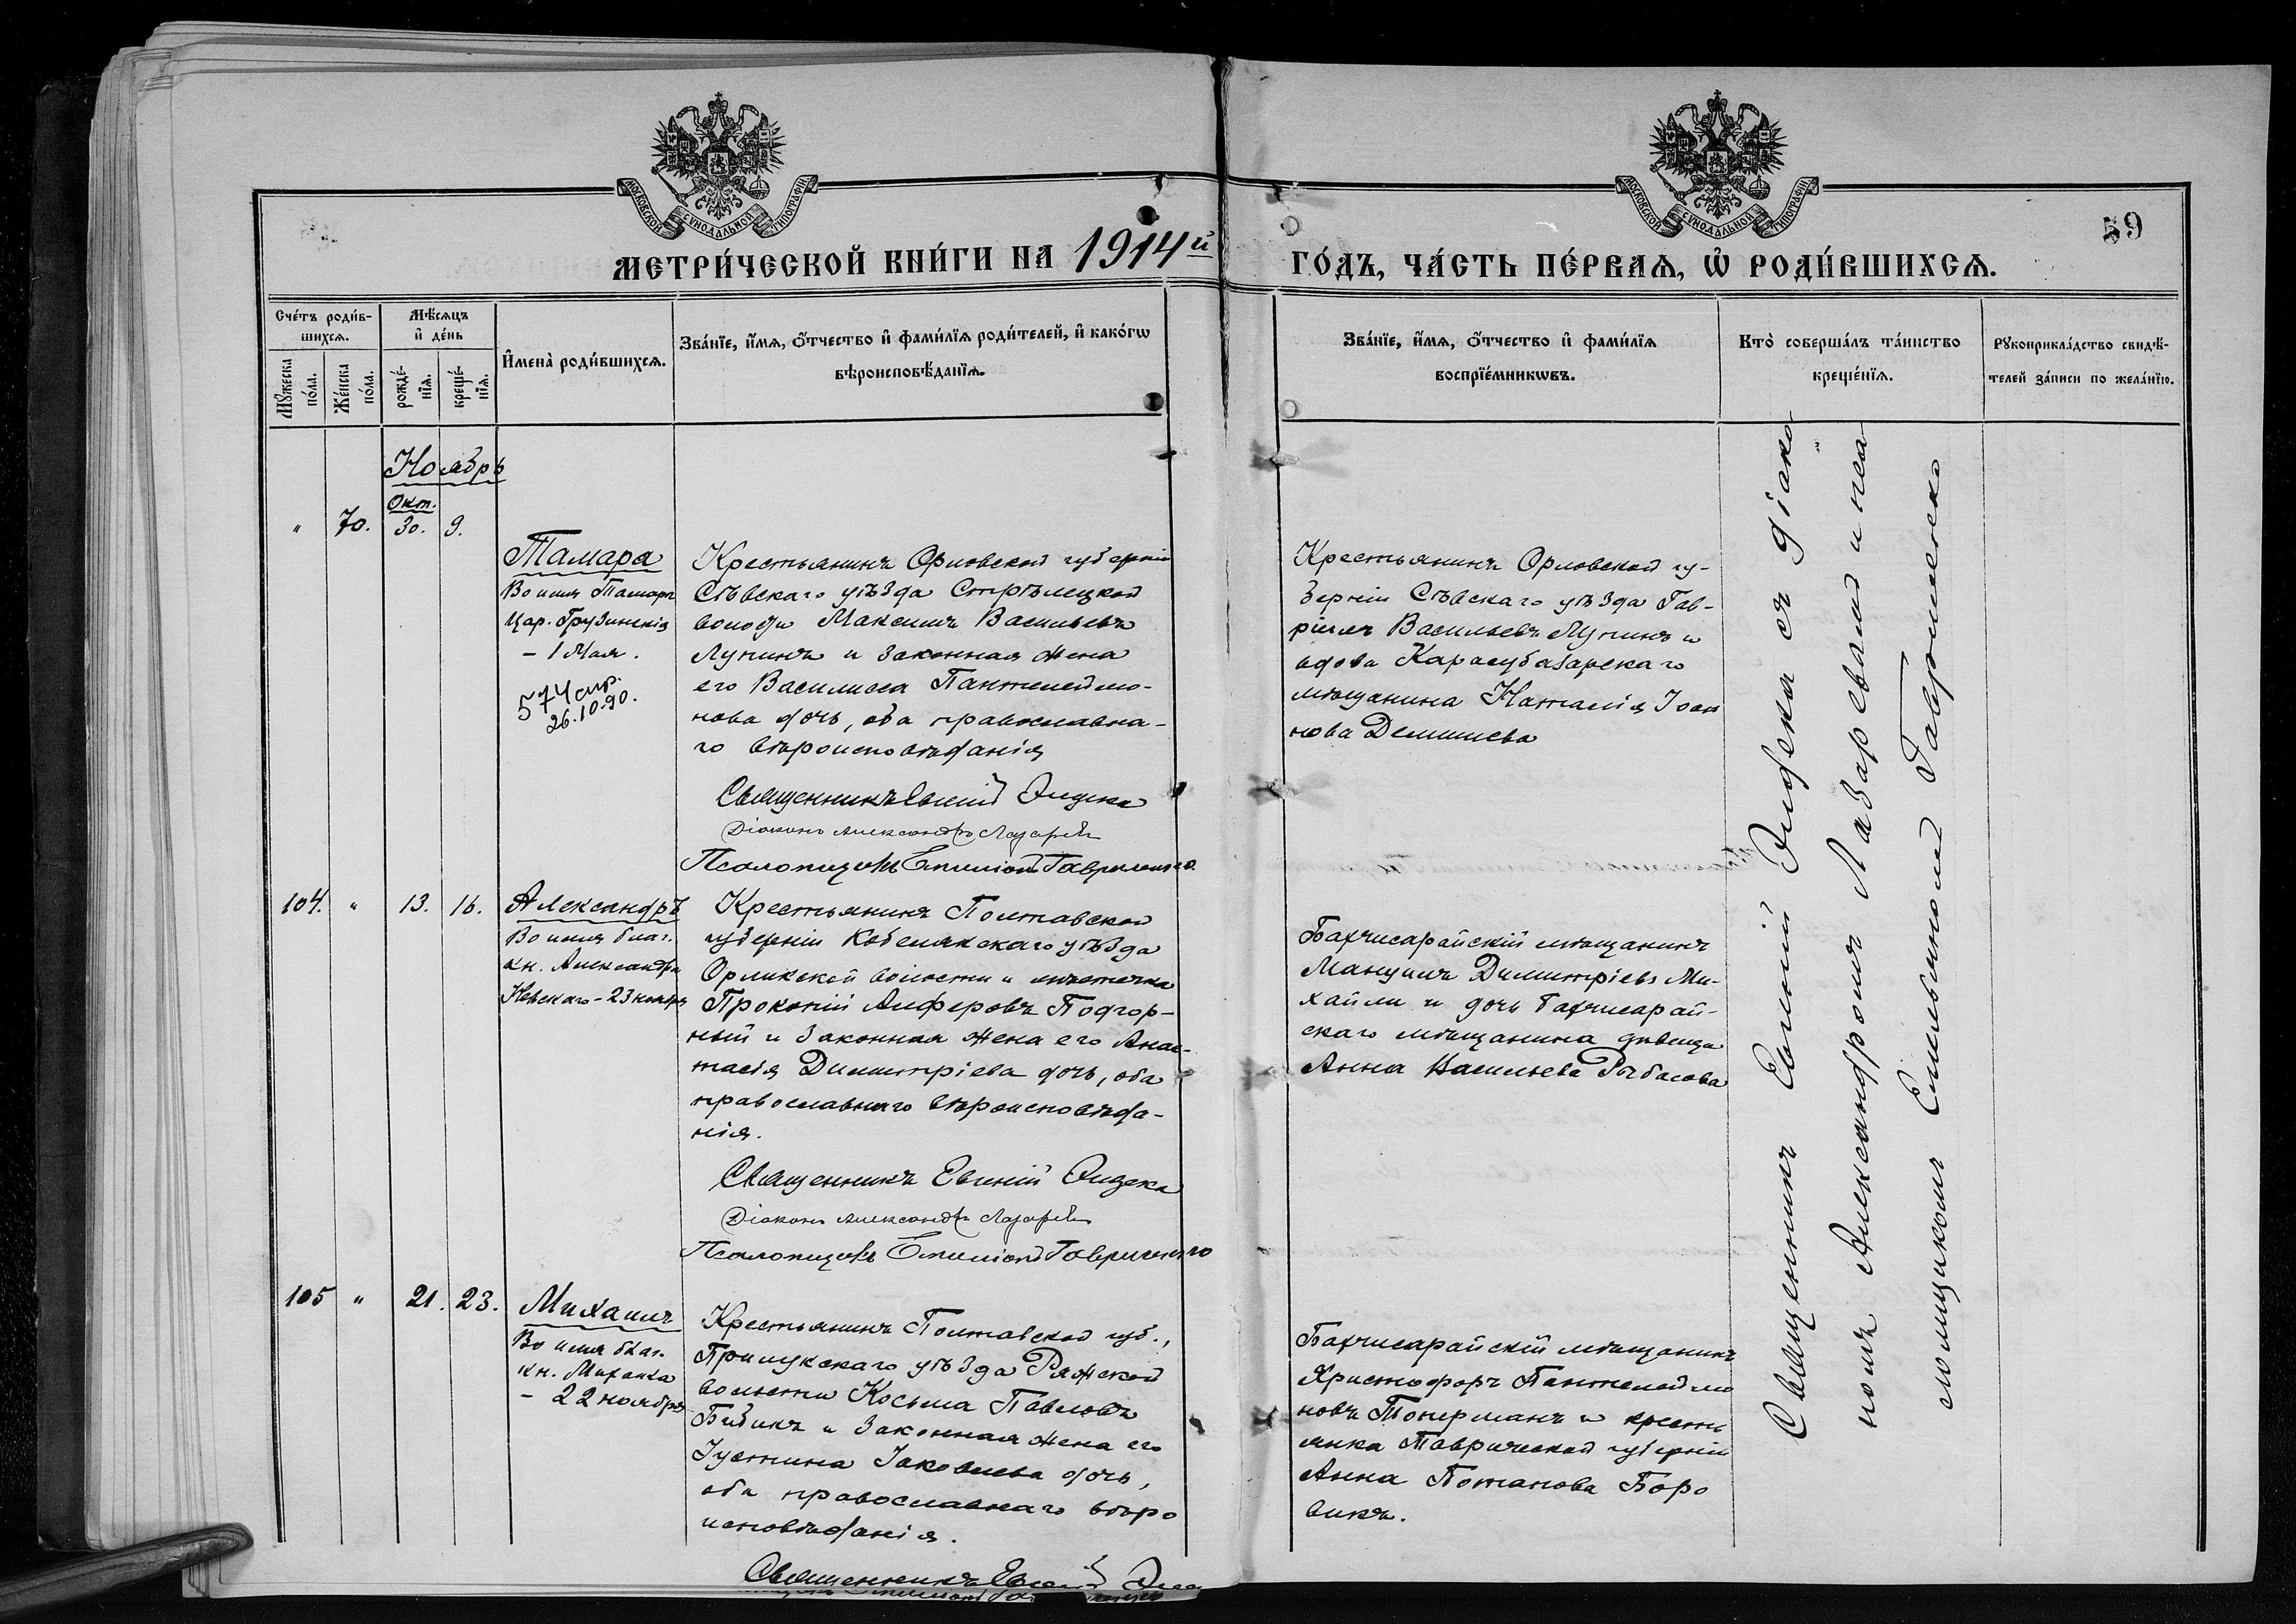 МОСКОВСКОЙ СѴНОДАЛЬНОЙ ТИПОГРАФІИ
МОСКОВСКОЙ СѴНОДАЛЬНОЙ ТИПОГРАФІИ
59
МЕТРИ́ЧЕСКОЙ КНИ́ГИ НА 1914й
ГО́ДЪ, ЧА́СТЬ ПЕ́РВАѦ, Ѡ҆ РОДИ́ВШИХСѦ.
Сче́тъ роди́в-
шихсѧ.
Мꙋ́жеска по́ла.
Же́нска по́ла.
Мѣ́сѧцъ
и҆ де́нь
рожде́-
нїѧ.
креще́-
нїѧ.
И҆мена̀ роди́вшихсѧ.
Зва́нїе, и҆́мѧ, ѻ҆́тчество и҆ фами́лїѧ роди́телей, и҆ како́гѡ
вѣроисповѣ́данїѧ.
Зва́нїе, и҆́мѧ, ѻ҆́тчество и҆ фами́лїѧ
воспрїе́мникѡвъ.
Кто̀ соверша́лъ та́инство
креще́нїѧ.
Рꙋкоприкла́дство свидѣ́-
телей за́писи по жела́нїю.
Ноябрь
Окт.
" 70. 30. 9.
Тамара
Во имя Тамары
Цар. Грузинскія
- 1 Мая.
574 спр.
26.10.90.
Крестьянинъ Орловской губерніи
Сѣвскаго уѣзда Стрѣлецкой
волости Максимъ Васильевъ
Лупинъ и законная жена
его Василисса Пантелеймо-
нова дочь, оба православна-
го вѣроисповѣданія
Священникъ Евгеній Эндека
Діаконъ Александръ Лазаревъ
Псаломщикъ Емиліанъ Гавриленко
Крестьянинъ Орловской гу-
берніи Сѣвскаго уѣзда Гав-
ріилъ Васильевъ Лупинъ и
вдова Карасубазарскаго
мѣщанина Наталія Іоан
нова Демишева
104. " 13. 16.
Александръ
Во имя благ.
кн. Александра
Невскаго - 23 ноября
Крестьянинъ Полтавской
губерніи Кобелякскаго уѣзда
Орликской волости и мѣстечка
Прокопій Алферовъ Подгор-
ный и законная жена его Анас-
тасія Димитріева дочь, оба
православнаго вѣроисповѣда-
нія.
Священникъ Евгеній Эндека
Діаконъ Александръ Лазаревъ
Псаломщикъ Емиліанъ Гавриленко
Бахчисарайскій мѣщанинъ
Мануилъ Димитріевъ Ми-
хайли и дочь Бахчисарай-
скаго мѣщанина дѣвица
Анна Васильева Рыбасова
105 " 21. 23.
Михаилъ
Во имя благ.
кн. Михаила
- 22 ноября
Крестьянинъ Полтавской губ.,
Прилукскаго уѣзда Ряжской
волости Косьма Павловъ
Бибикъ и законная жена его
Іустина Іаковлева дочь,
оба православнаго вѣро
исповѣданія.
Священникъ Евгеній
Бахчисарайскій мѣщанинъ
Христофоръ Пантелеймо
новъ Топерманъ и кресть
янка Таврической губерніи
Анна Потапова Боро
викъ.
Священникъ Евгеній Эндека съ діако
номъ Александромъ Лазаревымъ и пса
ломщикомъ Емельяномъ Гавриленко